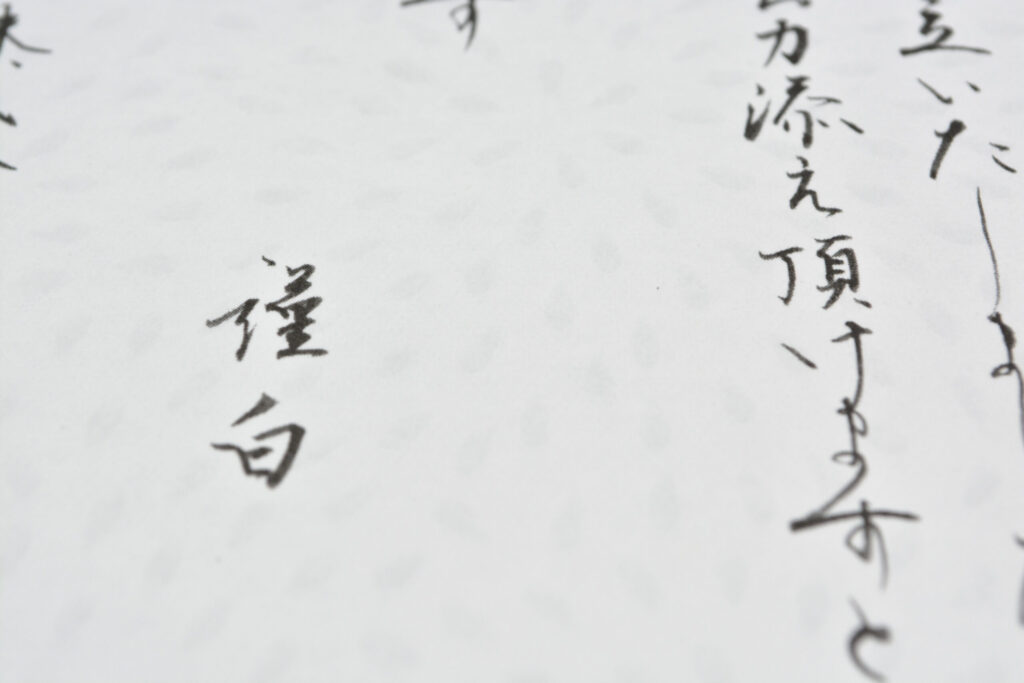 立いたしま
力添え頂けますと
す
謹白